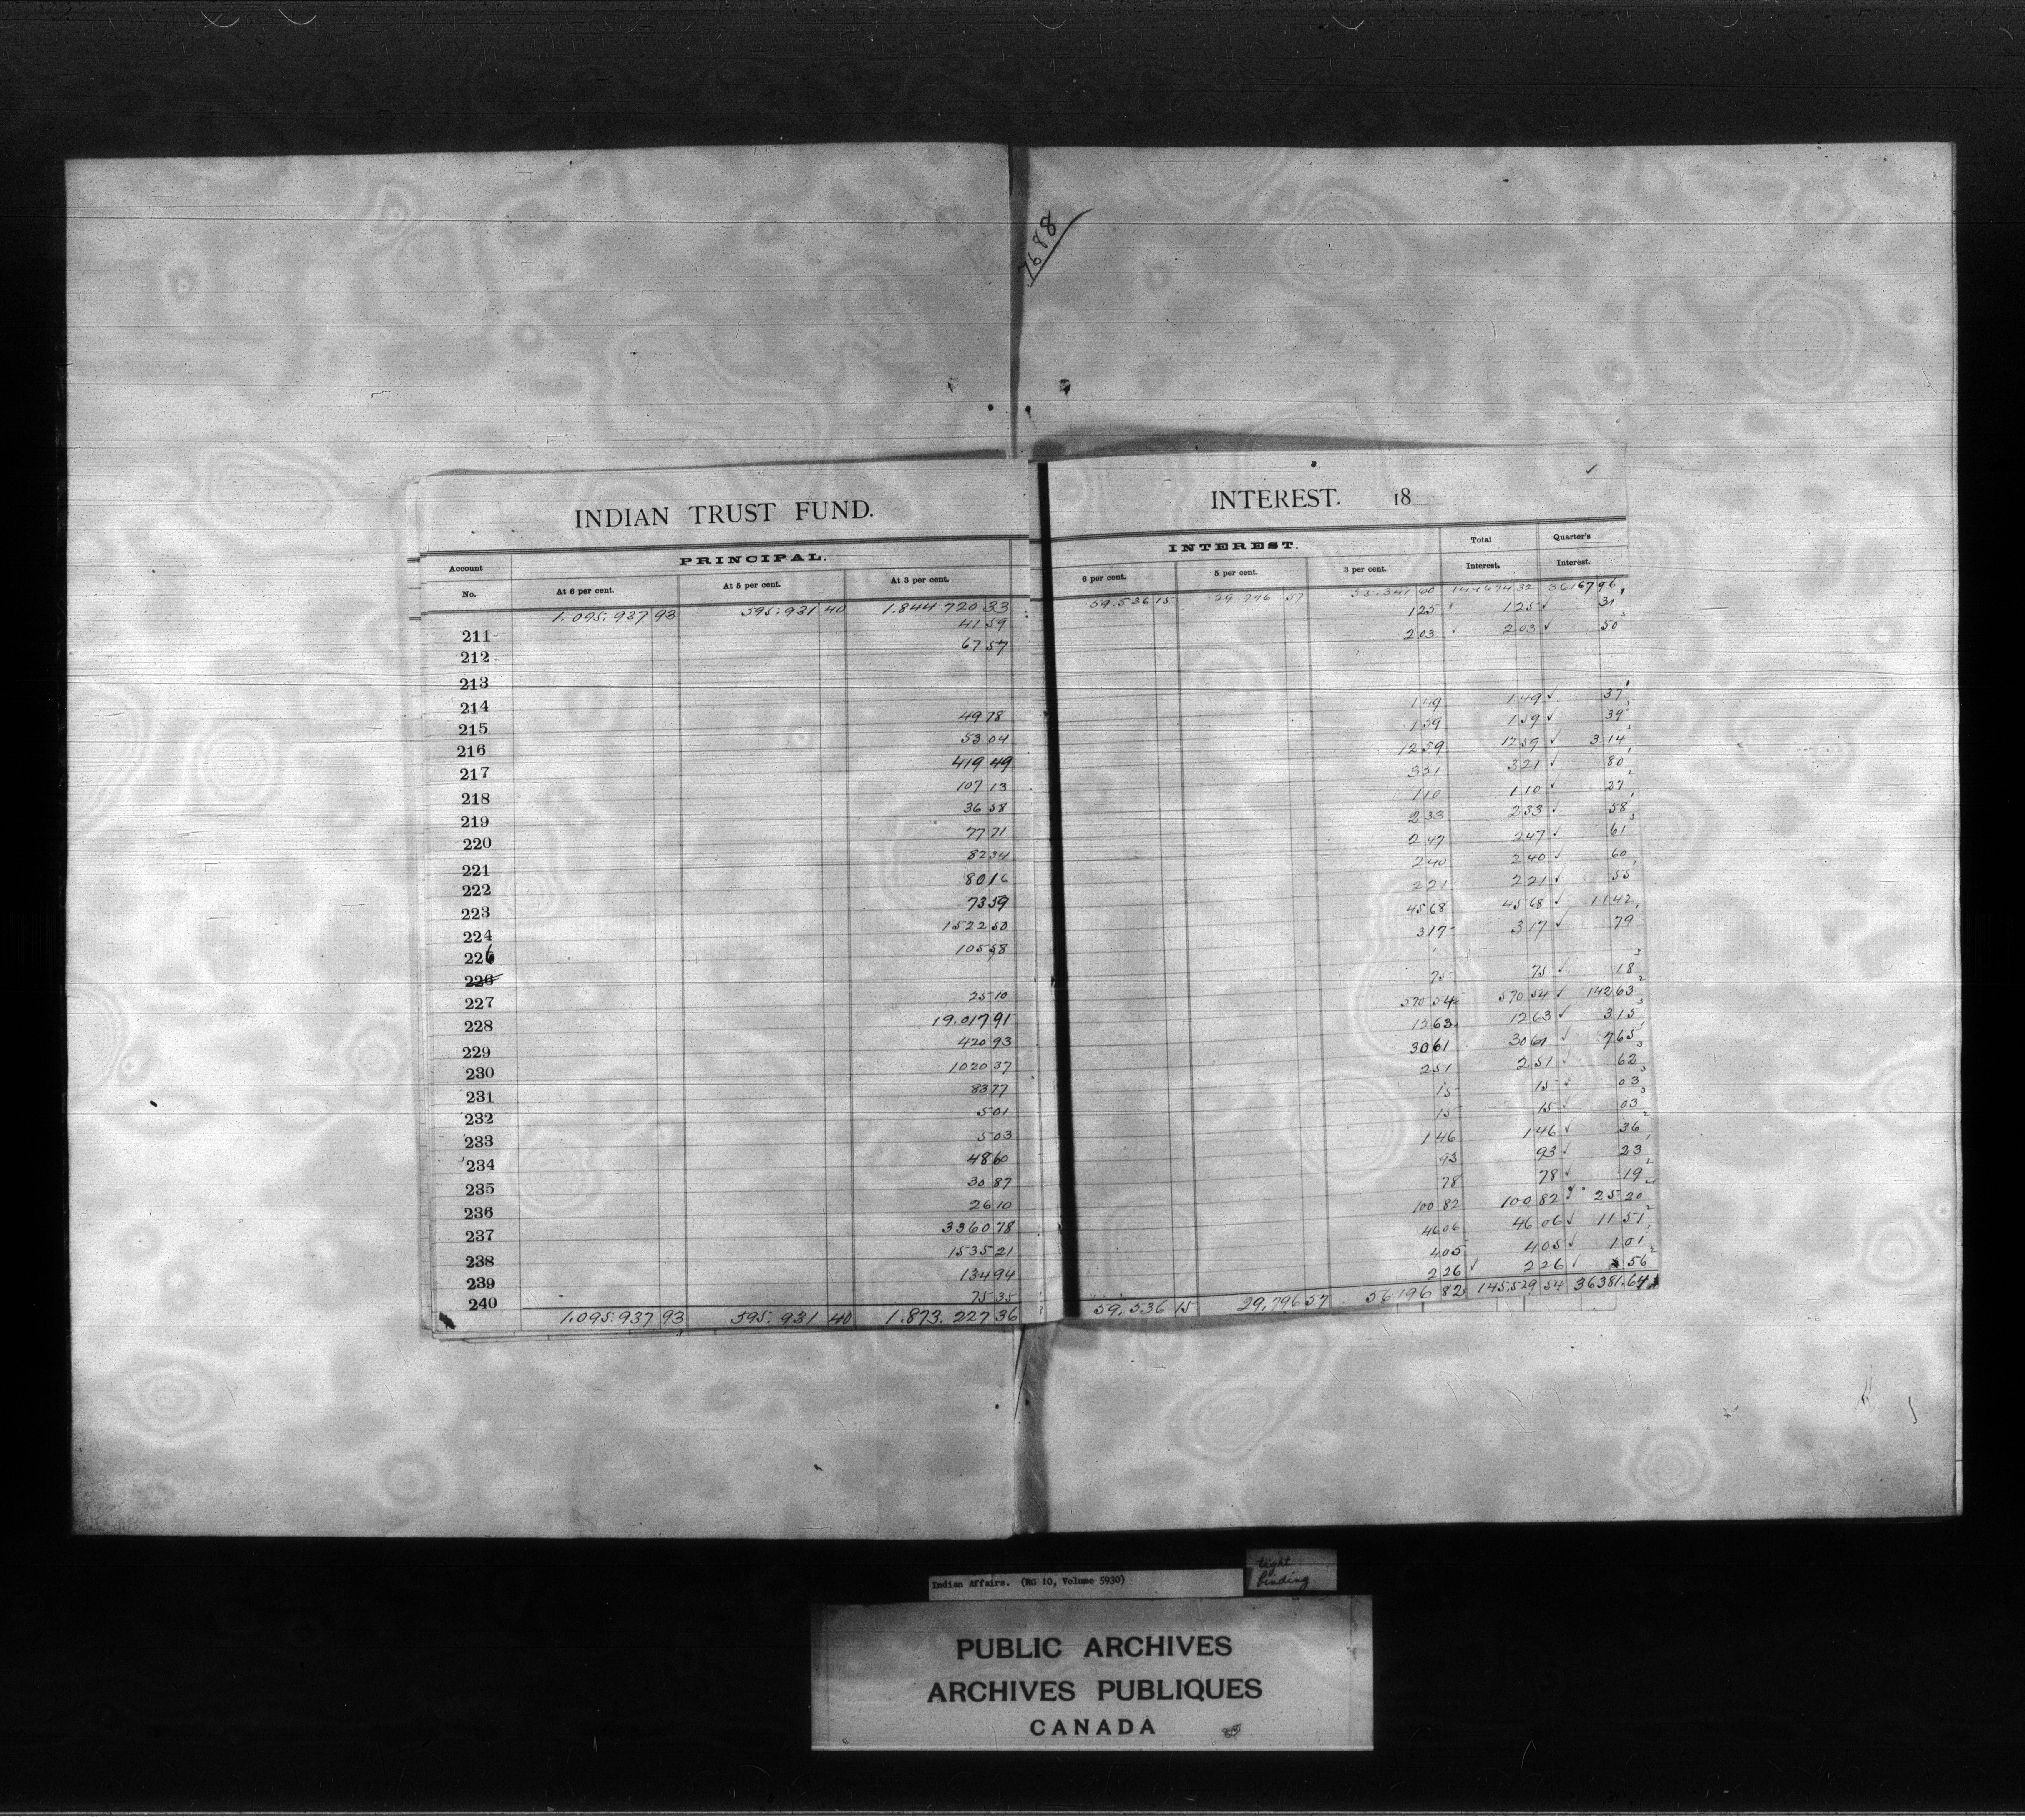 7688
INDIAN TRUST FUND. INTEREST. 18
Account No. PRINCIPAL. INTEREST. Total Interest. Quarter's Interest.
At 6 per cent. At 5 per cent. At 3 per cent. 6 per cent. 5 per cent. 3 per cent.
1.095.937 93 595.931 40 1.844 720 33 59.536 15 29 796 57 55.341 60 144674 32 36167 96
211 41 59 1 25 1 25 ✓ 31
212 67 57 2 03 2 03 ✓ 50
213
214
215 49 78 1 49 1 49 ✓ 37
216 53 04 1 59 1 59 ✓ 39
217 419 49 12 59 12 59 ✓ 3 14
218 107 13 3 21 3 21 ✓ 80
219 36 58 1 10 1 10 ✓ 27
220 77 71 2 33 2 33 ✓ 58
221 82 34 2 47 2 47 ✓ 61
222 80 16 2 40 2 40 ✓ 60
223 73 59 2 21 2 21 ✓ 55
224 1522 50 45 68 45 68 ✓ 11 42
226 105 58 3 17 3 17 ✓ 79
226
227 25 10 75 75 ✓ 18
228 19.017 91 570 54 570 54 ✓ 142 63
229 420 93 12 63 12 63 ✓ 3 15
230 1020 37 30 61 30 61 ✓ 7 65
231 83 77 2 51 2 51 ✓ 62
232 5 01 15 15 ✓ 03
233 5 03 15 15 ✓ 03
234 48 60 1 46 1 46 ✓ 36
235 30 87 93 93 ✓ 23
236 26 10 78 78 ✓ 19
237 3360 78 100 82 100 82 ✓ 25 20
238 1535 21 46 06 46 06 ✓ 11 51
239 134 94 4 05 4 05 ✓ 1 01
240 75 35 2 26 ✓ 2 26 ✓ 56
1.095.937 93 595.931 40 1.873.227 36 59,536 15 29,796 57 56 196 82 145.529 54 36381.64
Indian Affairs. (RG 10, Volume 5930)
tight
binding
PUBLIC ARCHIVES
ARCHIVES PUBLIQUES
CANADA